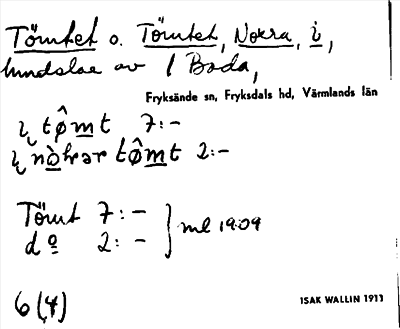 Tömtet o. Tömtet, Nokra, i,
hundslae av 1 Bada,
Fryksände sn, Fryksdals hd, Värmlands län
i tø̂mt 7:-
i nòkrar tø̂mt 2:-
Tömt 7:-
do 2:-
ml 1909
6(4)
ISAK WALLIN 1911